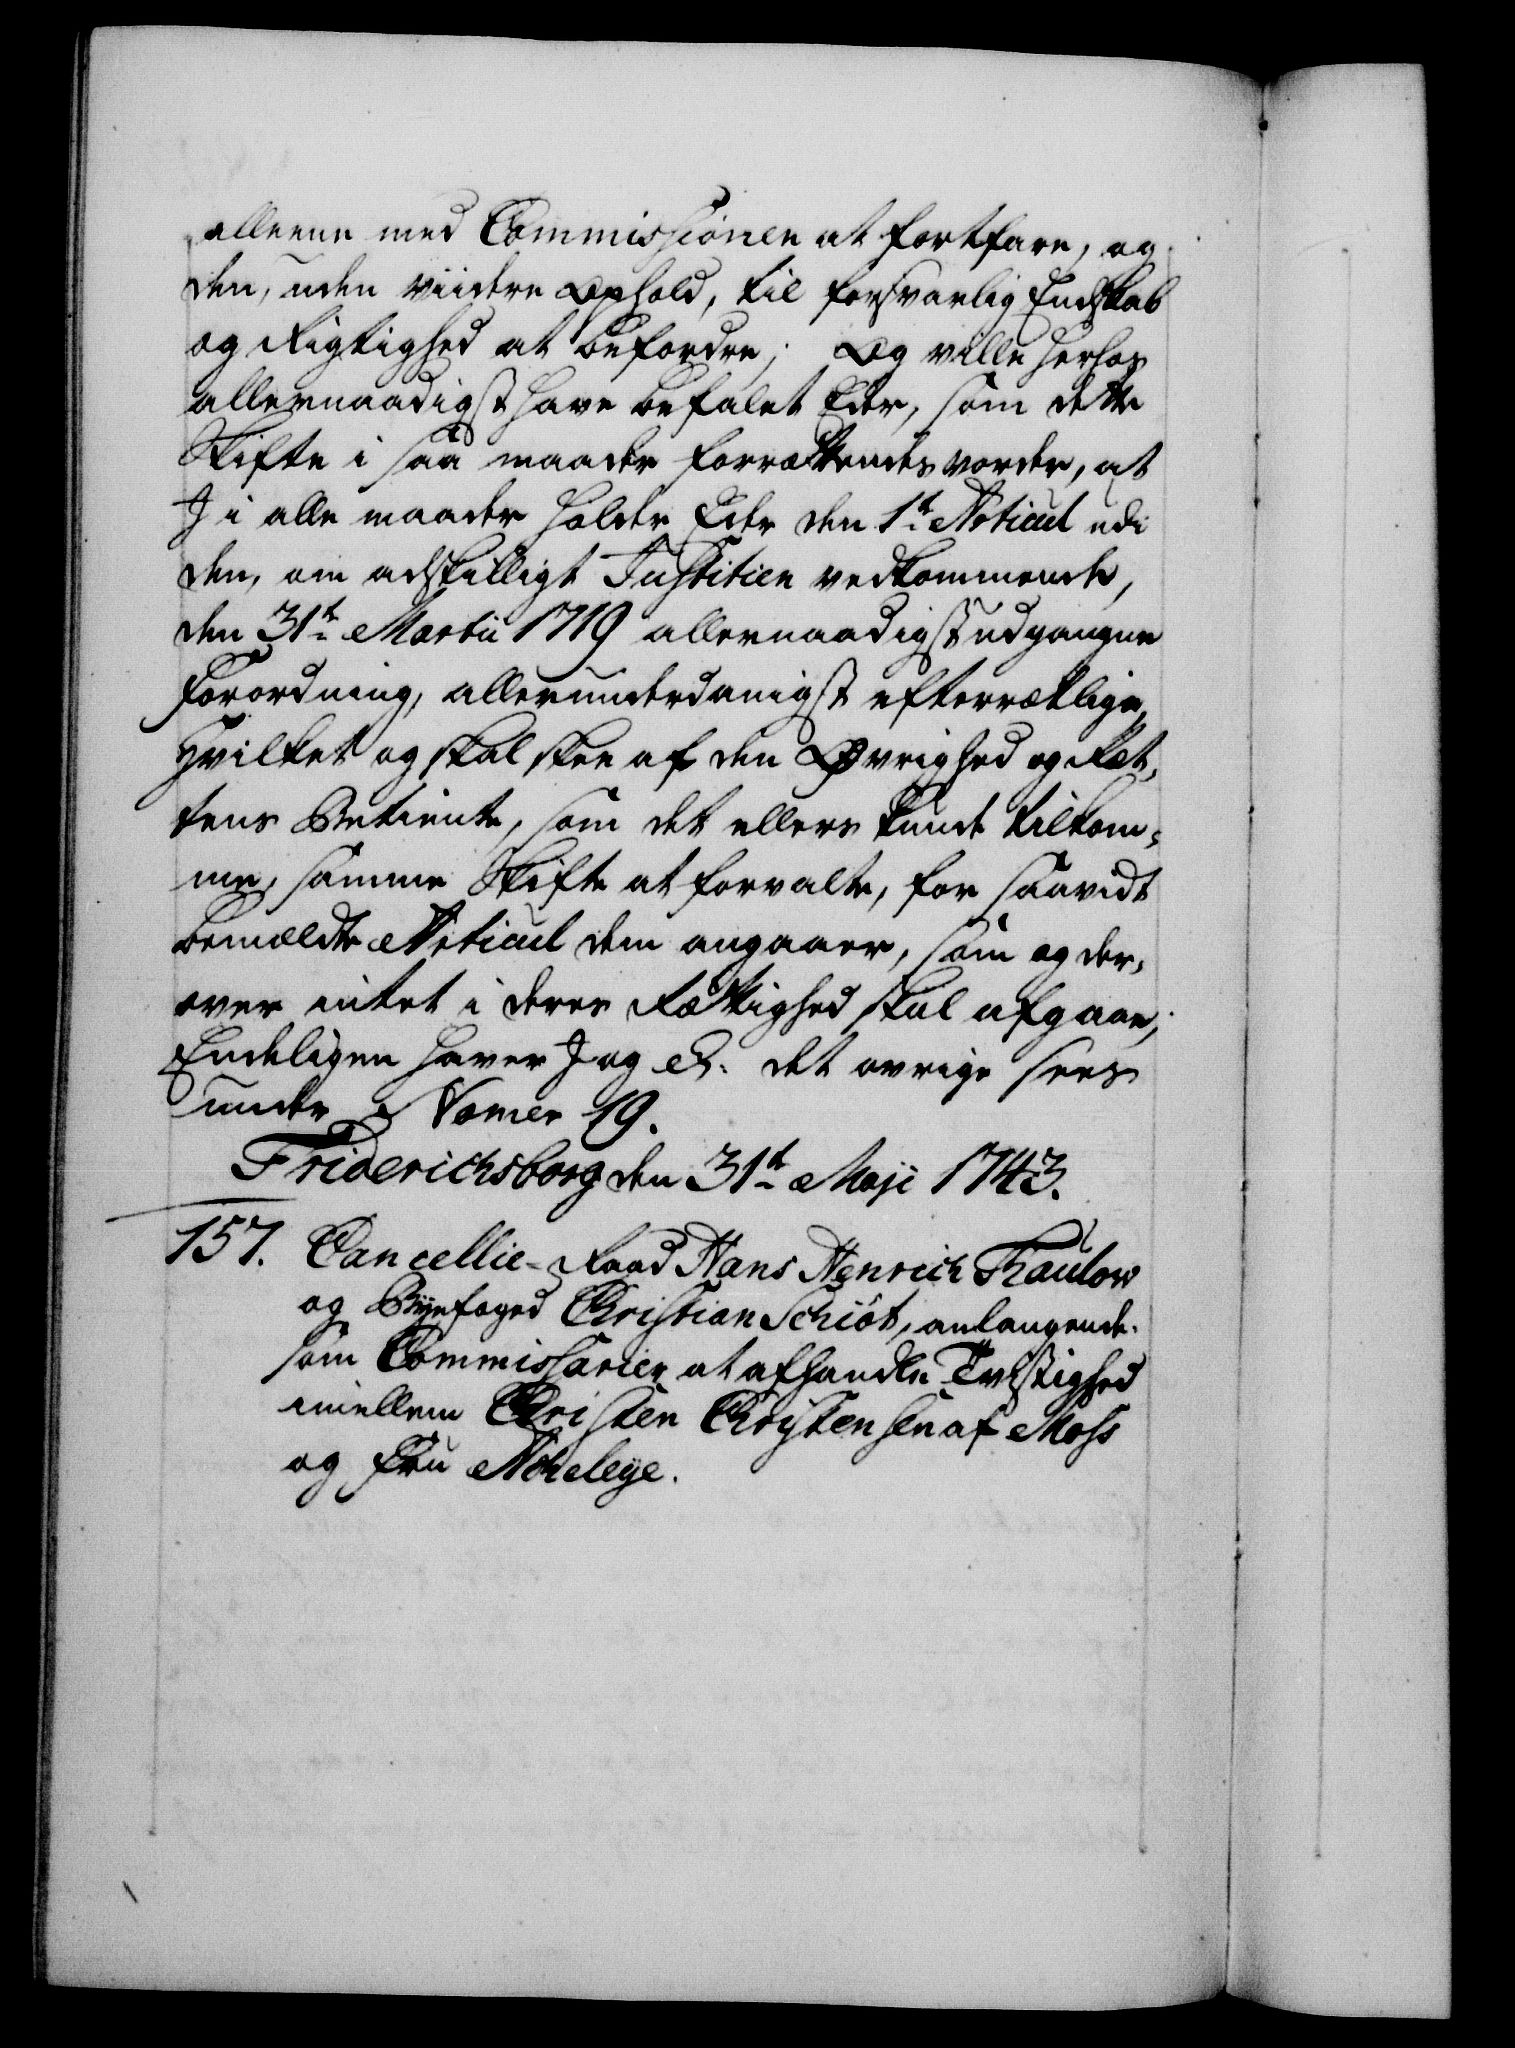 alleene med Commissionen at fortfare, og
den, uden viidere Ophold, til forsvarlig Endskab
og Rigtighed at befordre; Og ville herhos
allernaadigst have befalet Eder, som dette
Skifte i saa maader forrættendes vorder, at
I i alle maader holder Eder den 1te Articul udi
den, om adskilligt Justitien vedkommende,
den 31te Martii 1719 allernaadigst udgangne
Forordning, allerunderdanigst efterrættlige,
Hvilket og skal skee af den Øvrighed og Ret,
tens Betiente, som det ellers kunde tilkom,
me, samme Skifte at forvalte, for saavidt
bemældte Articul dem angaaer, som og der,
over intet i deres Rættighed skal afgaae;
Endeligen haver I og &. det øvrige sees
under Nomer 19.
Friderichsborg den 31te Maji 1743.
157. Cancellie-Raad Hans Henrich Thaulow
og Byefoged Christian Schiöt, anlangende
som Commissarier at afhandle Tvistighed
imellem Christen Christensen af Moss
og Fru Acheleye.